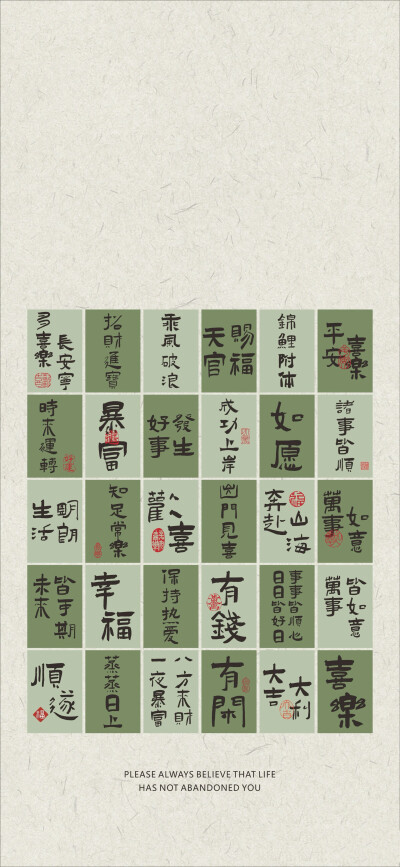 多喜樂
長安寧
招財進寶
乘風破浪
天官
賜福
錦鯉附体
平安
喜樂
時来運轉
暴富
好事
發生
成功上岸
如愿
諸事皆順
生活
明朗
知足常樂
喜
出門見喜
奔赴
山海
萬事
如意
未来
皆可期
幸福
保持热爱
有錢
事事皆順心
日日皆好日
萬事
皆如意
順遂
蒸蒸日上
八方来财
一夜暴富
有閑
大吉
大利
喜樂
PLEASE ALWAYS BELIEVE THAT LIFE
HAS NOT ABANDONED YOU